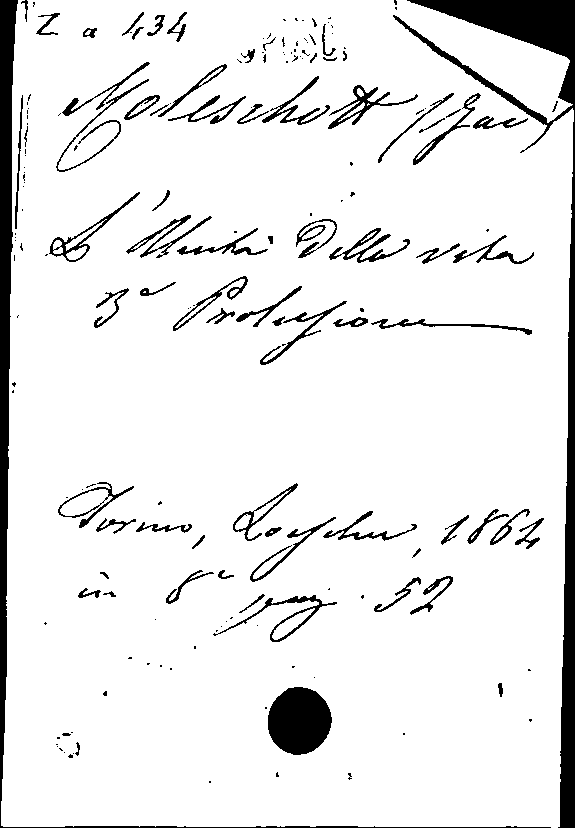 Z a 434
Moleschott (Jac)
L'Unità della vita
3a Prolusione
Torino, Loescher, 1864
in 8o pag. 52